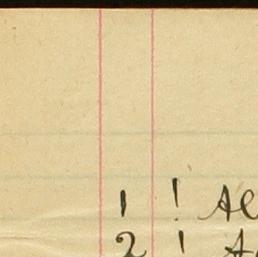 1 ! Al
2 ! A